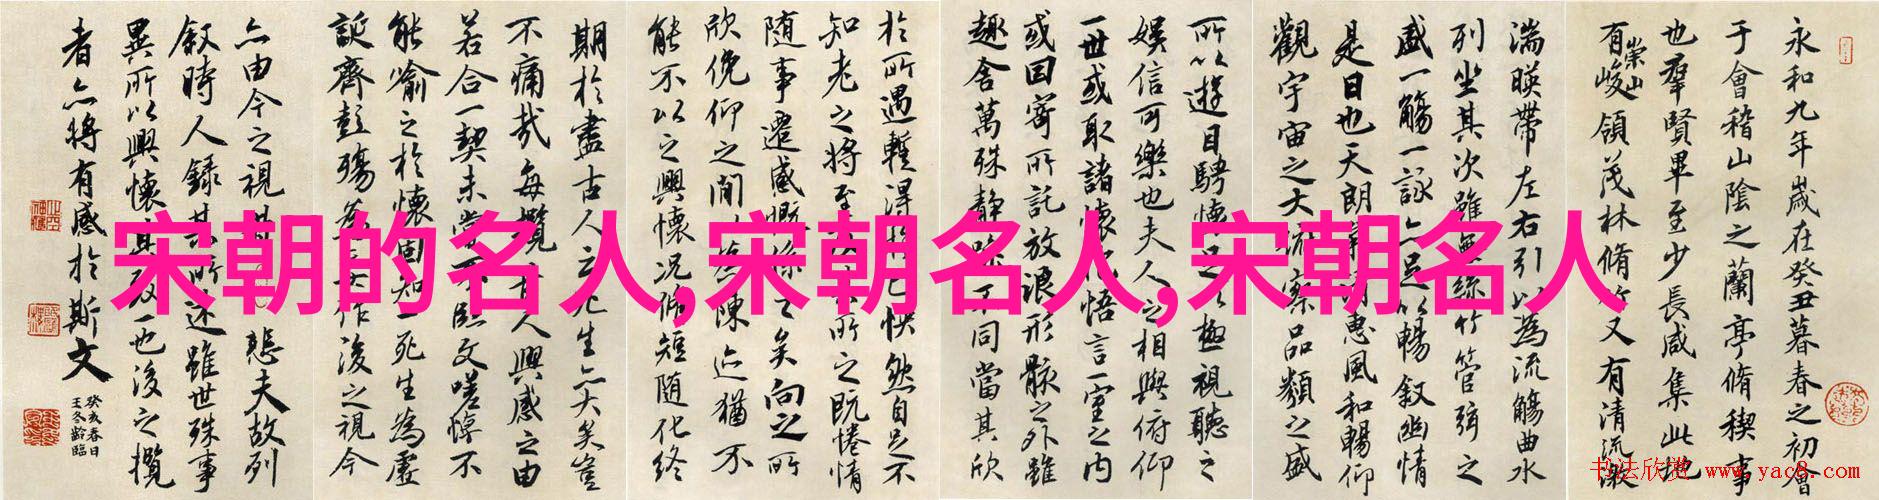 永和九年歲在癸丑暮春之初會
于會稽山陰之蘭亭脩稧事
也羣賢畢至少長咸集此地
有崇山峻領茂林脩竹又有清流激
湍暎帶左右引以為流觴曲水
列坐其次雖無絲竹管弦之
盛一觴一詠亦足以暢敘幽情
是日也天朗惠風和暢仰
觀宇宙之大察品類之盛
所以遊目騁懷足以極視聽之
娛信可樂也夫人之相與俯仰
一世或取諸懷悟言一室之內
或因寄所託放浪形骸之外雖
趣舍萬殊靜不同當其欣
於所遇暫得快然自足不
知老之將至所之既惓情
隨事遷感慨係之矣向之所
欣俛仰之閒以陳迹猶不
能不以之興懷況脩短隨化終
期於盡古人云死生亦大矣豈
不痛哉每攬人興感之由
若合一契未嘗不臨文嗟悼不
能喻之於懷固知一死生為虛
誕齊彭殤為作後之視今
亦由今之視悲夫故列
敘時人錄其所述雖世殊事
異所以興懷其致一也後之攬
者亦將有感於斯文
癸亥春日
王冬齡臨
宋朝的名人,宋朝名人,宋朝名人
书法欣赏 www.yac8.com